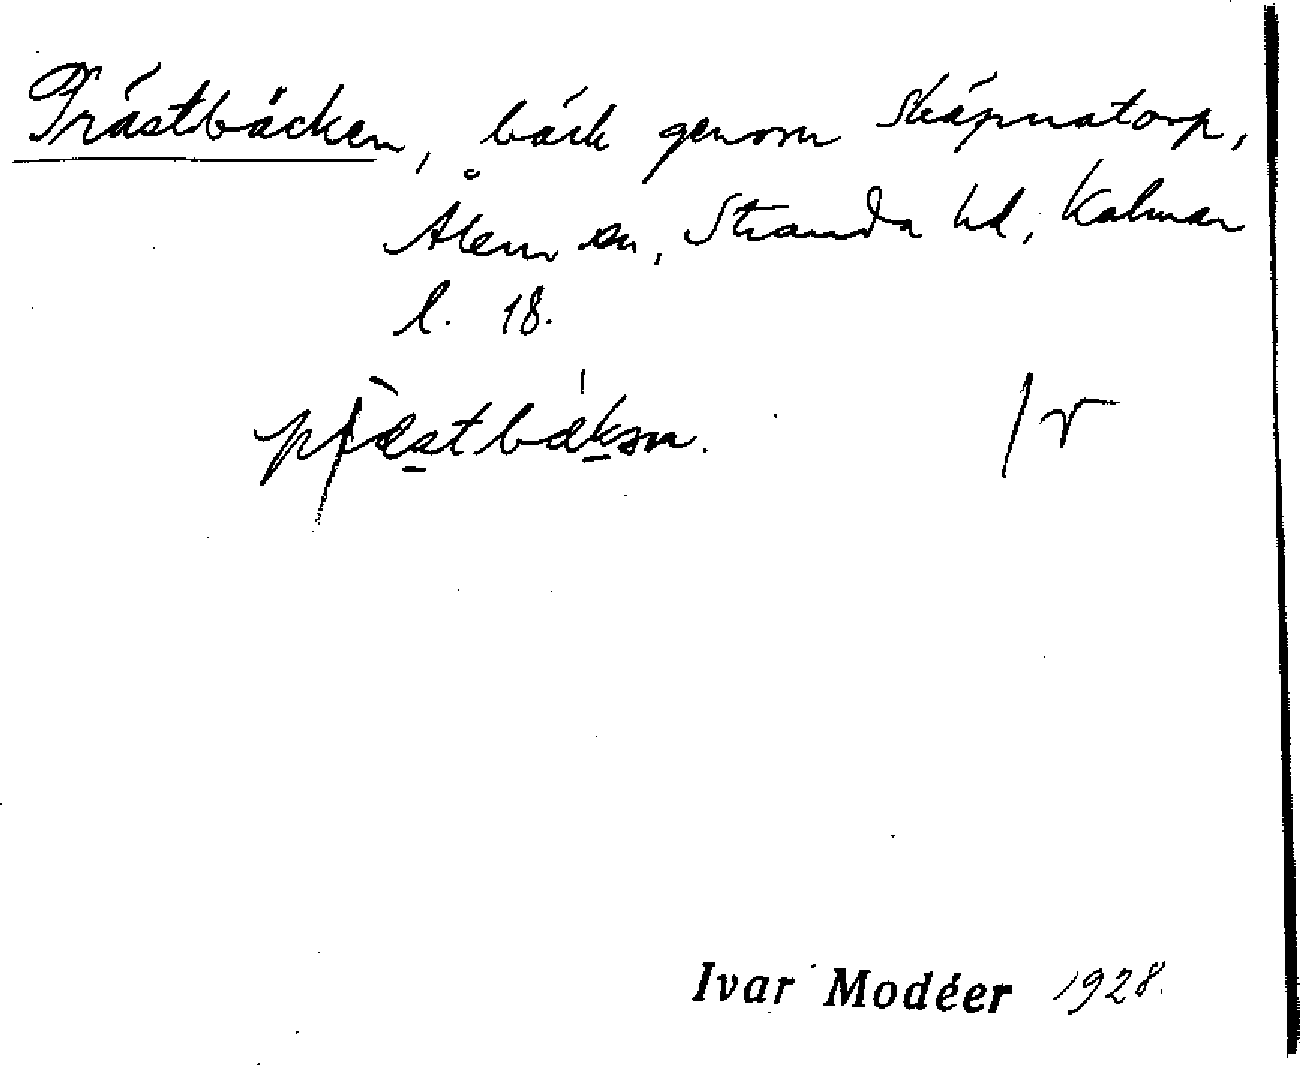 Prästbäcken, bäck genom Skäpnatorp,
Ålem sn, Stranda hd, Kalmar
l. 18.
Ivar Modéer 1928.